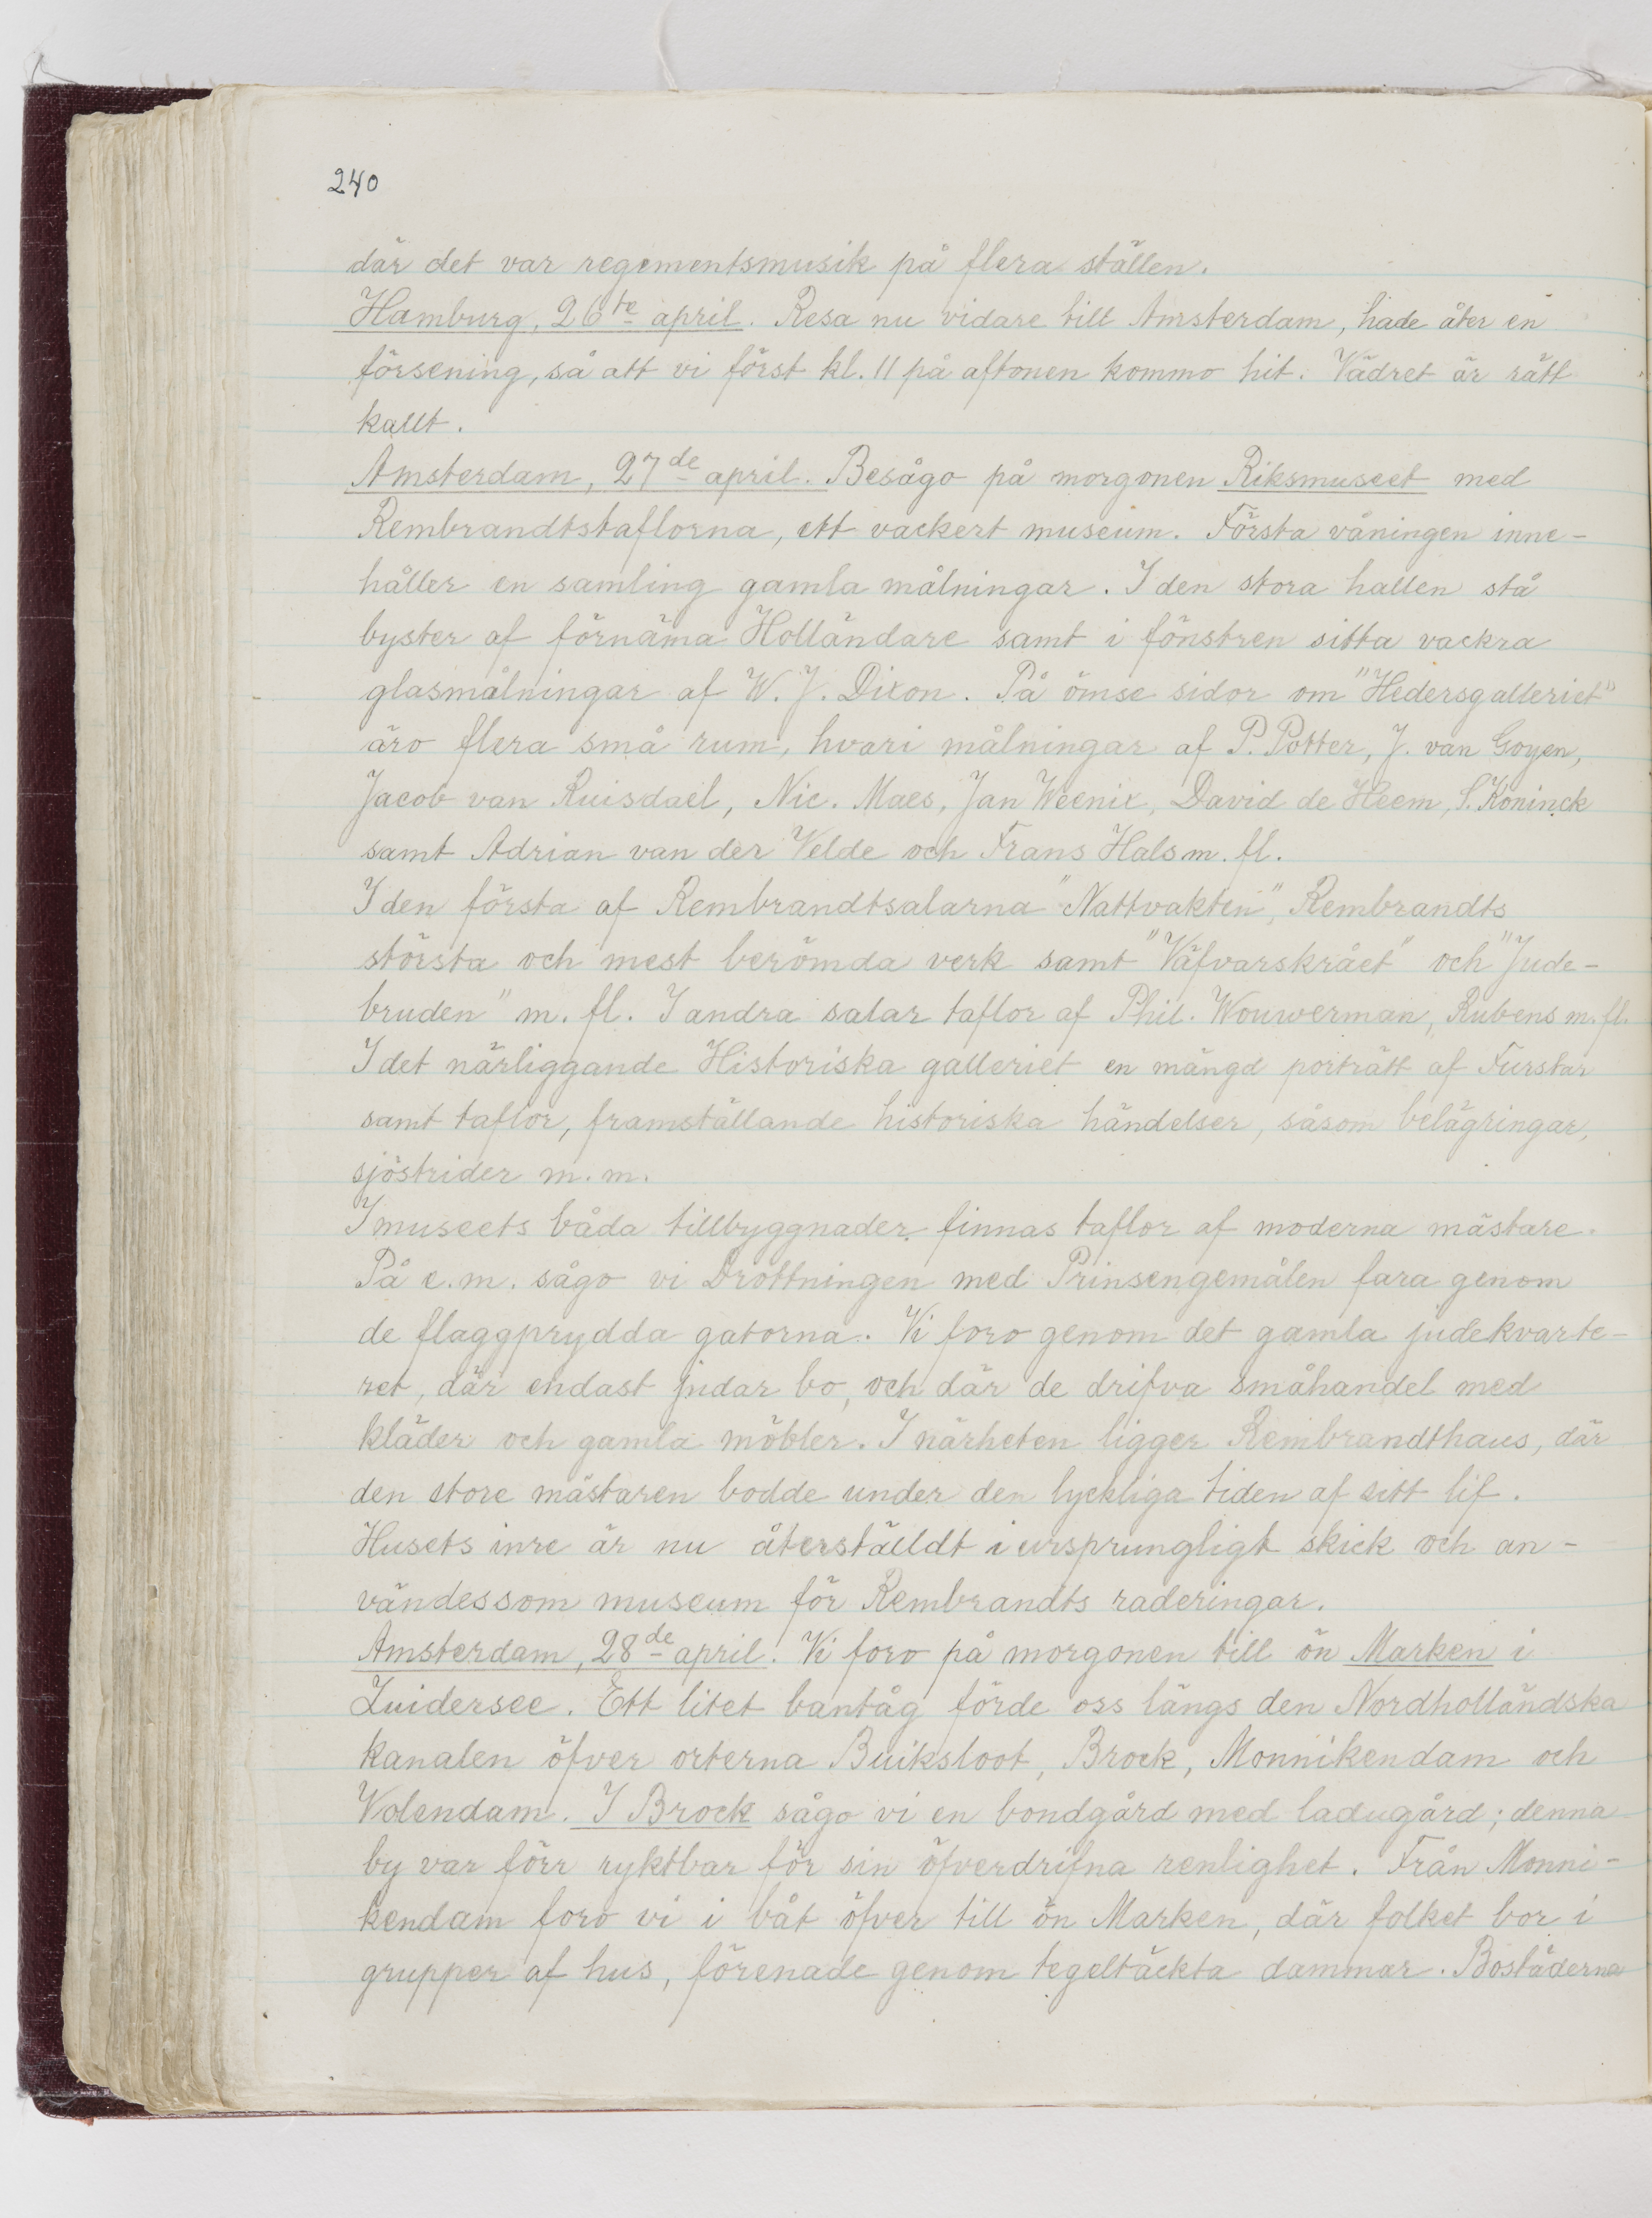 240
där det var regementsmusik på flera ställen.
Hamburg, 26te april. Resa nu vidare till Amsterdam, hade åter en
försening, så att vi först kl. 11 på aftonen kommo hit. Vädret är rätt
kallt.
Amsterdam, 27de april. Besågo på morgonen Riksmuseet med
Rembrandtstaflorna, ett vackert museum. Första våningen inne-
håller en samling gamla målningar. I den stora hallen stå
byster af förnäma Holländare samt i fönstren sitta vackra
glasmålningar af W. J. Dixon. På ömse sidor om "Hedersgalleriet"
äro flera små rum, hvari målningar af P. Potter, J. van Goyen,
Jacob van Ruisdael, Nic. Maes, Jan Weenix, David de Heem, S. Koninck
samt Adrian van der Velde och Frans Hals m. fl.
I den första af Rembrandtsalarna "Nattvakten", Rembrandts
största och mest berömda verk samt "Väfvarskrået" och "Jude-
bruden" m. fl. I andra salar taflor af Phil. Wouwerman, Rubens m. fl.
I det närliggande Historiska galleriet en mängd porträtt af Furstar
samt taflor, framställande historiska händelser, såsom belägringar,
sjöstrider m. m.
I museets båda tillbyggnader finnas taflor af moderna mästare.
På e. m. sågo vi Drottningen med Prinsengemålen fara genom
de flaggprydda gatorna. Vi foro genom det gamla judekvarte-
ret, där endast judar bo, och där de drifva småhandel med
kläder och gamla möbler. I närheten ligger Rembrandthaus, där
den store mästaren bodde under den lyckliga tiden af sitt lif.
Husets inre är nu återställdt i ursprungligt skick och an-
vändes som museum för Rembrandts raderingar.
Amsterdam, 28de april. Vi foro på morgonen till ön Marken i
Zuidersee. Ett litet bantåg förde oss längs den Nordholländska
kanalen öfver orterna Buiksloot, Brock, Monnikendam och
Volendam. I Brock sågo vi en bondgård med ladugård; denna
by var förr ryktbar för sin öfverdrifna renlighet. Från Monni-
kendam foro vi i båt öfver till ön Marken, där folket bor i
grupper af hus, förenade genom tegeltäckta dammar. Bostäderna